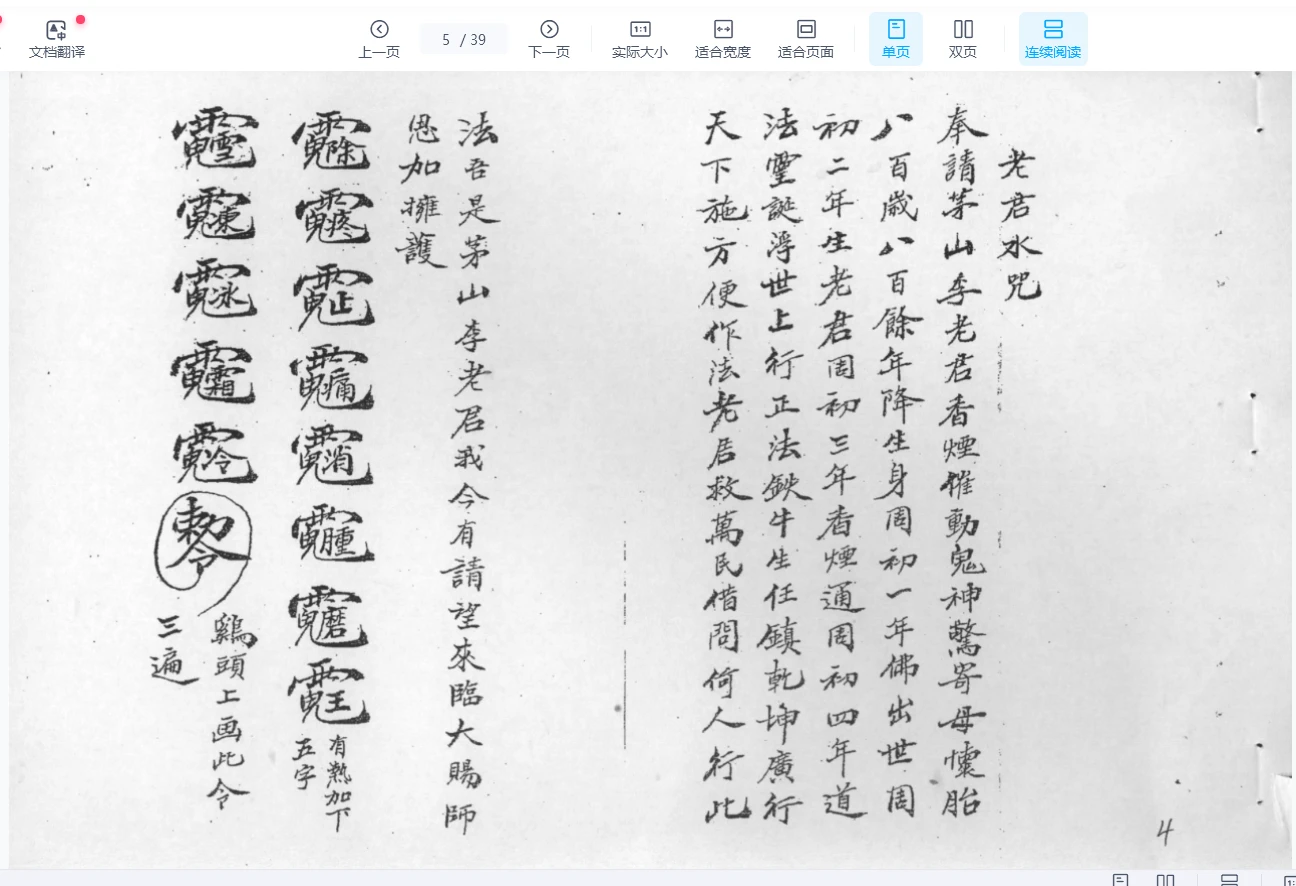 文档翻译
上一页
5 / 39
下一页
实际大小
适合宽度
适合页面
单页
双页
连续阅读
老君水咒
奉請茅山李老君香煙催動鬼神驚寄母懷胎
八百歲八百餘年降生身周初一年佛出世周
初二年生老君周初三年香煙通周初四年道
法靈誕浮世上行正法鉄牛生任鎮乾坤廣行
天下施方便作法老君救萬民借問何人行此
法吾是茅山李老君我今有請望來臨大賜師
恩加擁護
有熱加下
五字
勅令
鷄頭上画此令
三遍
4